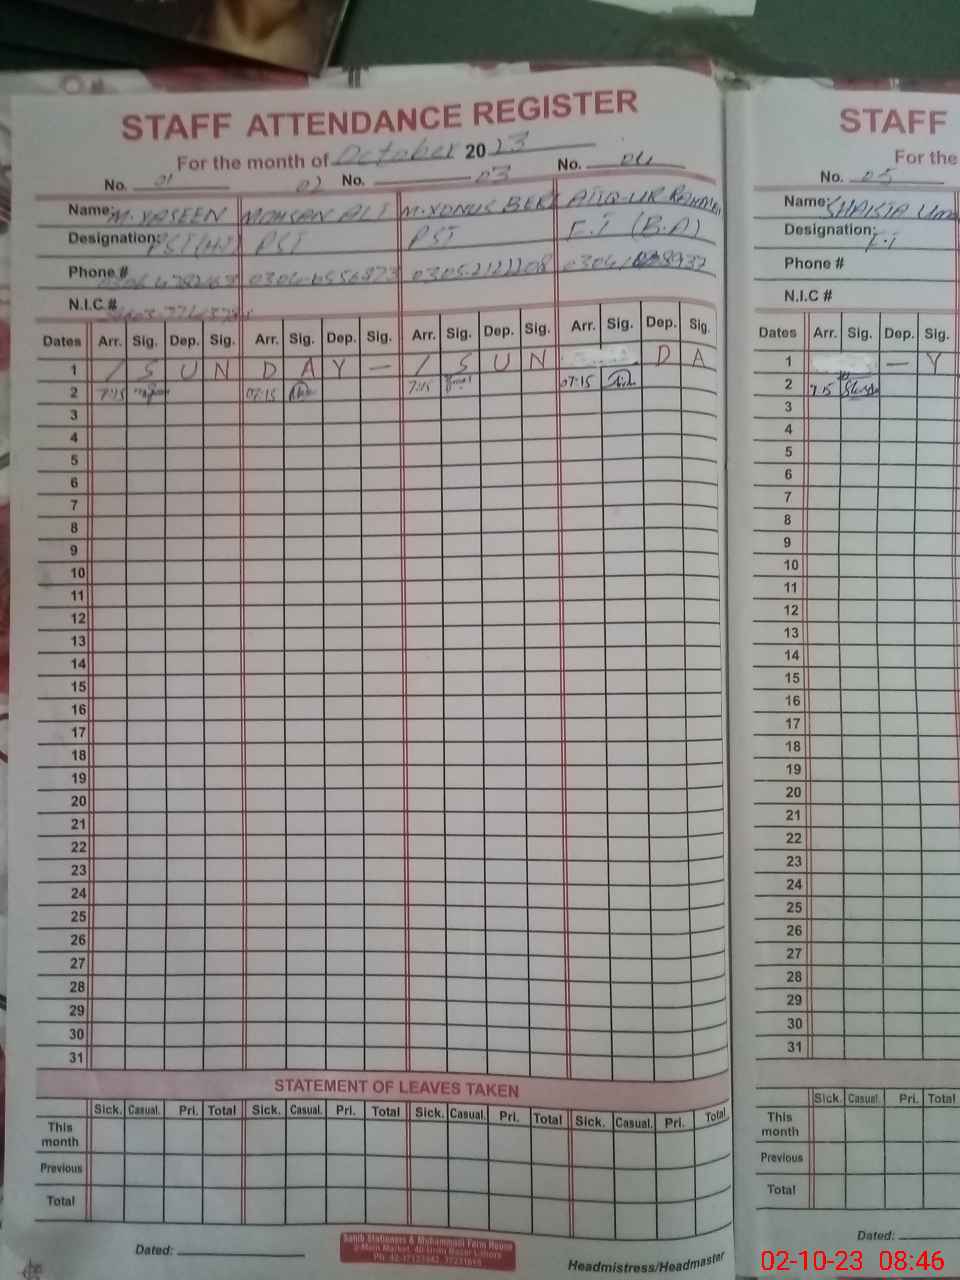 STAFF ATTENDANCE REGISTER
For the month of October 2023
No. 01 02 No. 03 No. 04
Name: M. YASEEN MOHSAN ALI M. YONUS BER ATIQ-UR RAHMAN
Designation: PST PST E.I (B.A)
Phone # 0305.2121208
N.I.C.#
Dates Arr. Sig. Dep. Sig. Arr. Sig. Dep. Sig. Arr. Sig. Dep. Sig. Arr. Sig. Dep. Sig.
1 / S U N D A Y — / S U N D A
2 7:15 07:15 7:15 07:15
3
4
5
6
7
8
9
10
11
12
13
14
15
16
17
18
19
20
21
22
23
24
25
26
27
28
29
30
31
STATEMENT OF LEAVES TAKEN
Sick. Casual. Pri. Total Sick. Casual. Pri. Total Sick. Casual. Pri. Total Sick. Casual. Pri. Total
This month
Previous
Total
Dated:
Headmistress/Headmaster
STAFF
For the
No. 05
Name: SHAKIA
Designation: E.I
Phone #
N.I.C #
Dates Arr. Sig. Dep. Sig.
1 — Y
2 7:15
3
4
5
6
7
8
9
10
11
12
13
14
15
16
17
18
19
20
21
22
23
24
25
26
27
28
29
30
31
Sick. Casual. Pri. Total
This month
Previous
Total
Dated:
02-10-23 08:46